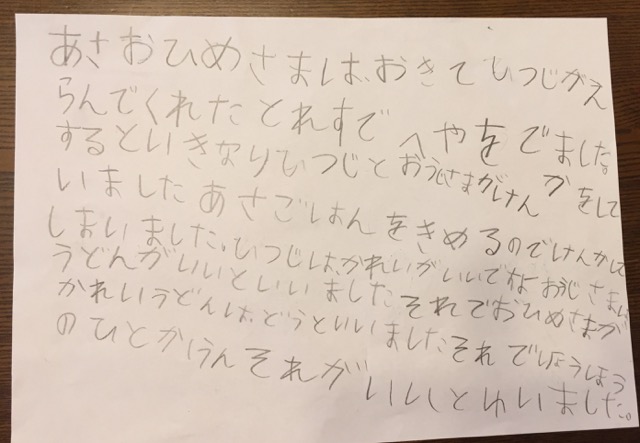 あさおひめさまは、おきて ひつじがえ
らんでくれたとれすで へやをでました。
するといきなりひつじとおうじさまがけんかをして
いましたあさごはんをきめるのでけんかして
しまいました。ひつじは、かれいがいいですねおうじさまは
うどんがいいといいましたそれでおひめさまが
かれいうどんは、どうといいましたそれでしょうしょう
のひとかはんそれがいいとゆいました。